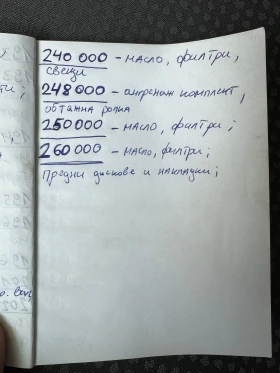 240 000 - масло, филтри,
свещи
248 000 - ангренаж комплект,
обтяжна ролка
250 000 - масло, филтри;
260 000 - масло, филтри;
предни дискове и накладки;